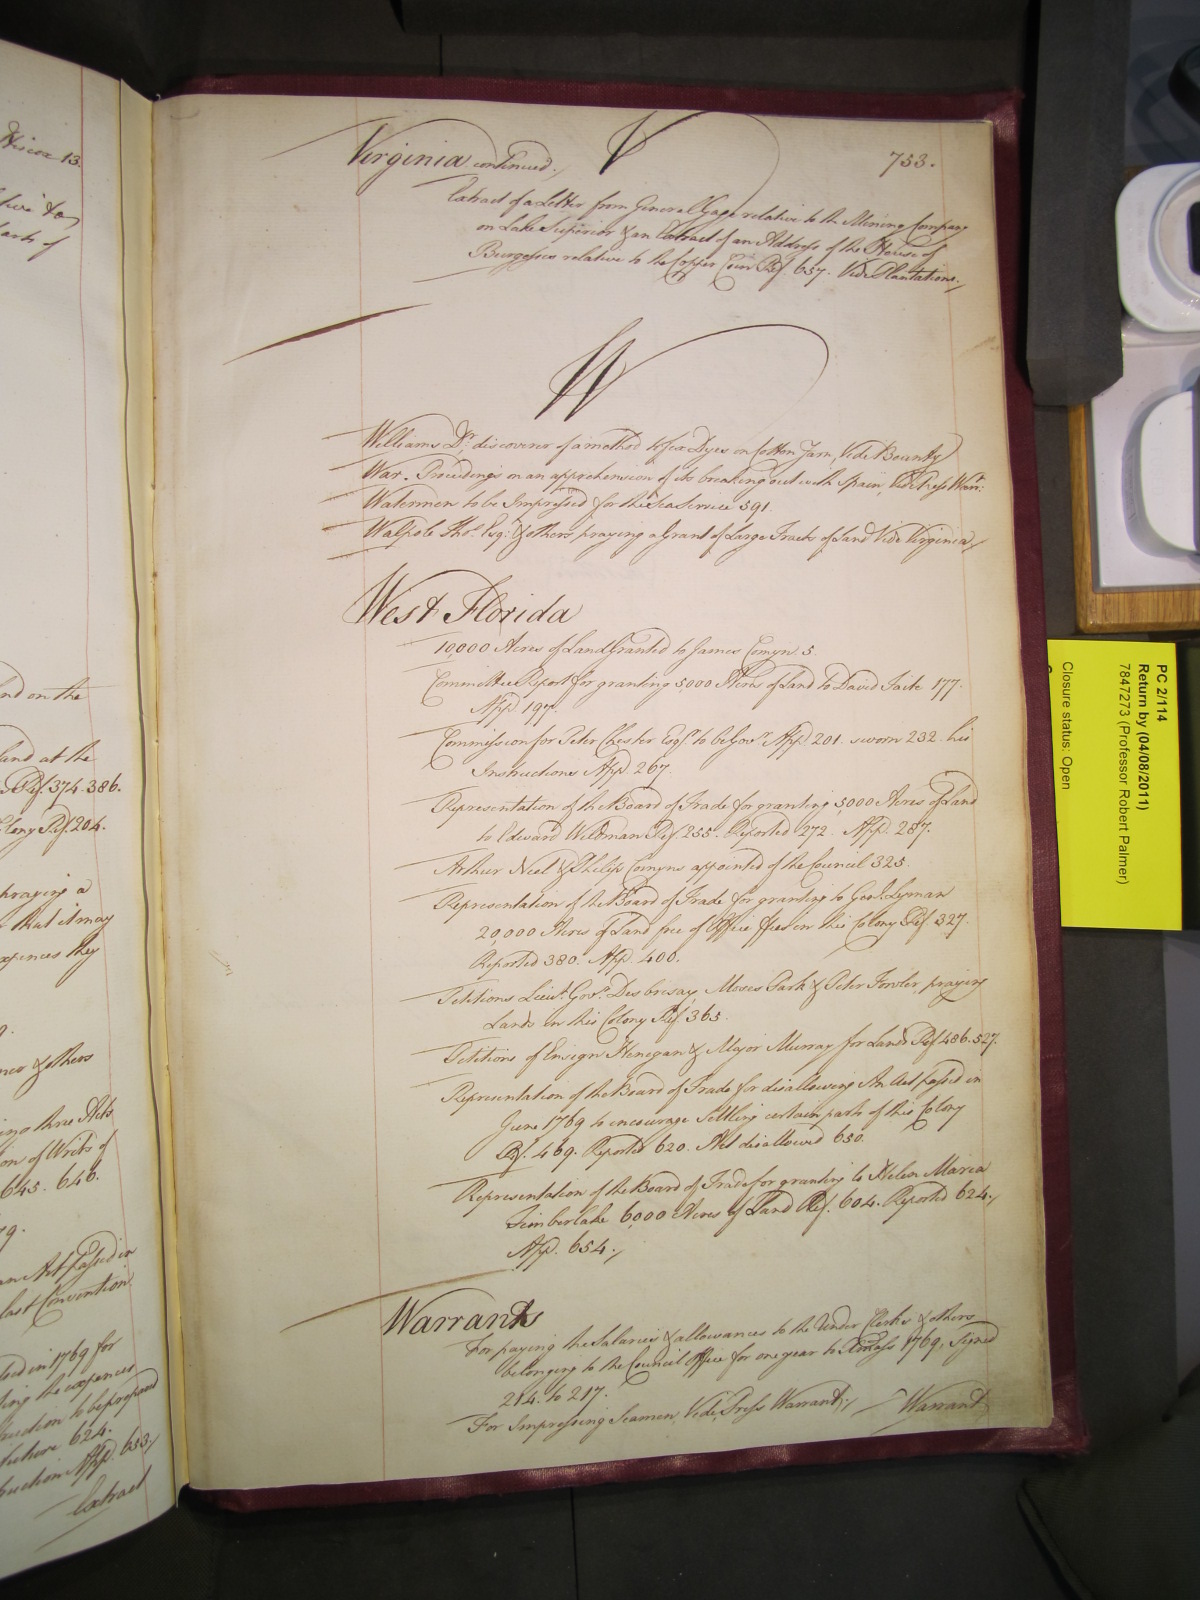 Hiscox 13.
and on the
Land at the
Ref. 374. 386.
Colony Ref. 204.
praying a
that it may
expences they
& others
three Acts
on of Writs of
645. 646.
an Act passed in
last Convention
in 1769 for
the expences
to be prepared
624.
App. 653./
Extract
Virginia continued./ V 753.
Extract of a Letter from General Gage relative to the Mining Company
on Lake Superior & an Extract of an Address of the House of
Burgesses relative to the Copper Coin Ref. 657. Vide Plantations./
W
Williams Dr. discoverer of a method to fix Dyes on Cotton Yarn, Vide Bounty
War. Proceedings on an apprehension of its breaking out with Spain, Vide Press Warrt.
Watermen to be Impressed for the Sea Service 591.
Walpole Thos. Esqr. & others praying a Grant of Large Tracts of Land Vide Virginia./
West Florida
10,000 Acres of Land Granted to James Comyn 5.
Committee Report for granting 5,000 Acres of Land to David Taite 177.
App. 197.
Commission for Peter Chester Esqr. to be Govr. App. 201. sworn 232. his
Instructions App. 267.
Representation of the Board of Trade for granting 5,000 Acres of Land
to Edward Wildman Ref. 255. Reported 272. App. 287.
Arthur Neil & Philip Comyns appointed of the Council 325.
Representation of the Board of Trade for granting to Genl. Lyman
20,000 Acres of Land free of Office fees in this Colony Ref. 327.
Reported 380. App. 400.
Petitions Lieut. Govr. Desbrisay, Moses Park & Peter Fowler, praying
Lands in this Colony Ref. 365.
Petitions of Ensign Henegan & Major Murray for Lands Ref. 486. 527.
Representation of the Board of Trade for disallowing An Act passed in
June 1769 to encourage Settling certain parts of this Colony
Ref. 469. Reported 620. Act disallowed 650.
Representation of the Board of Trade for granting to Helen Maria
Timberlake 6,000 Acres of Land Ref. 604. Reported 624./
App. 654./
Warrants
For paying the Salaries & allowances to the Under Clerks & others
belonging to the Council Office for one year to Xmass 1769, Signed
214. to 217.
For Impressing Seamen, Vide Press Warrant;/ Warrant
PC 2/114
Return by (04/08/2011)
7847273 (Professor Robert Palmer)
Closure status: Open